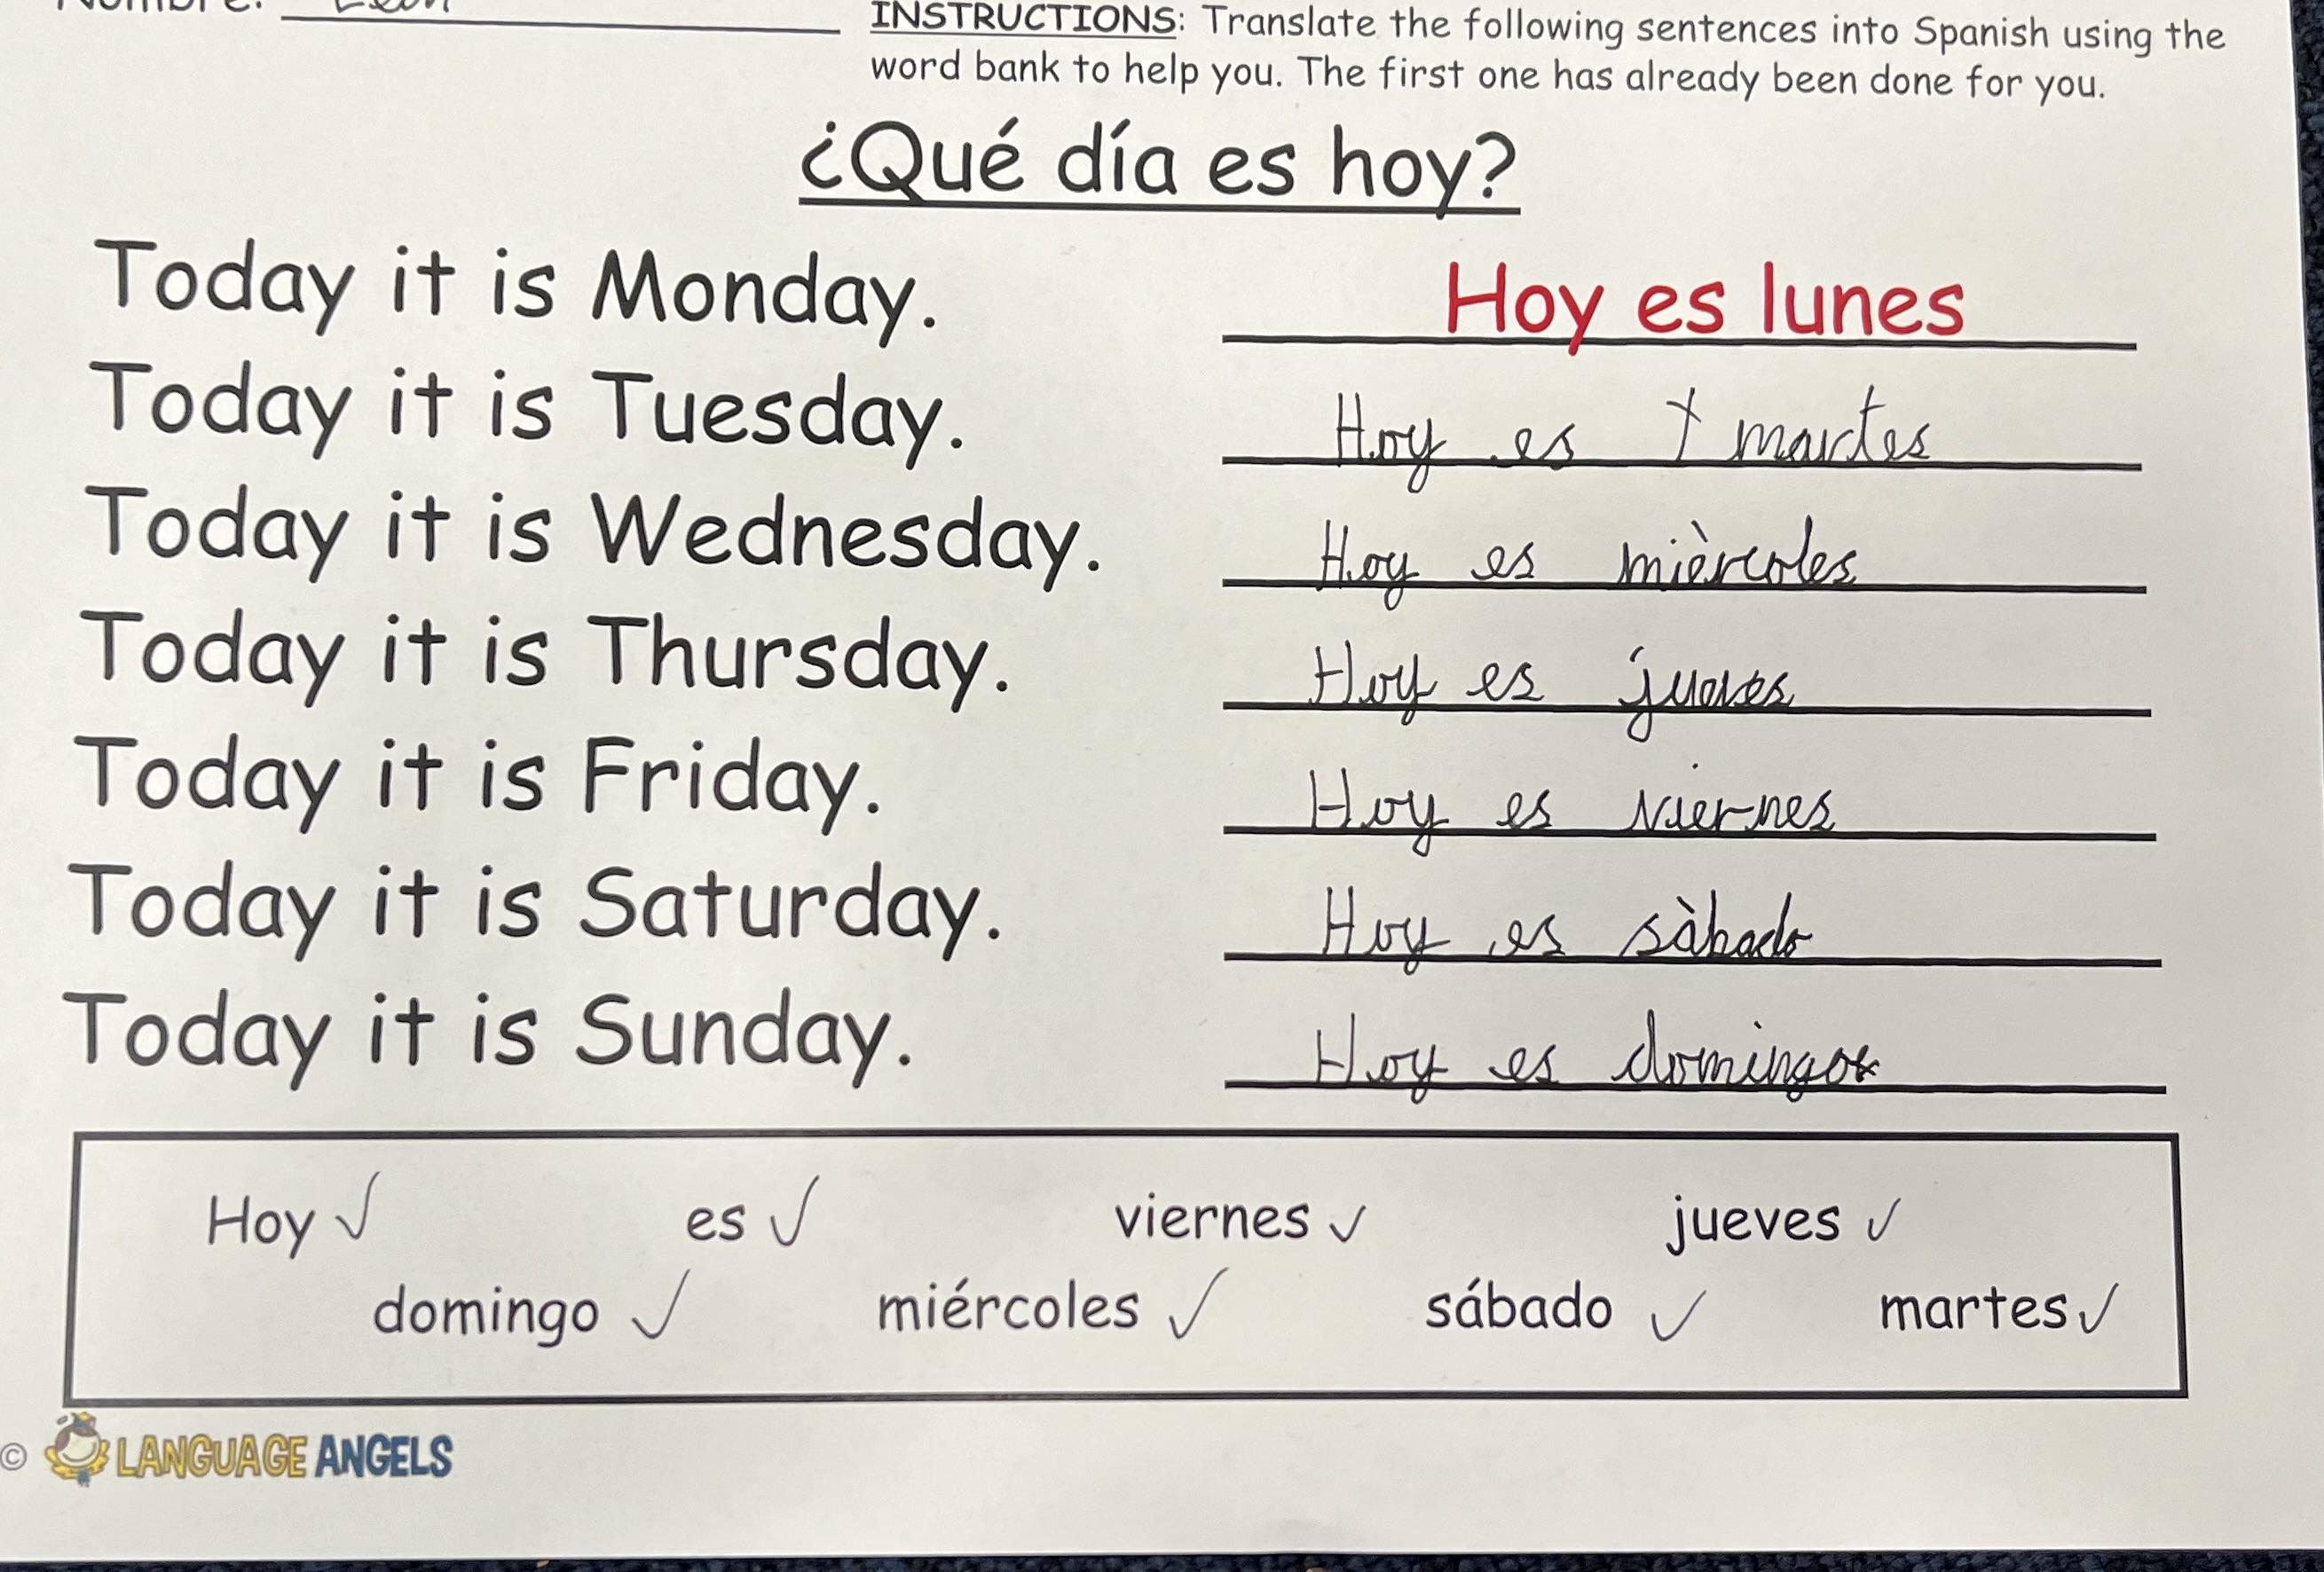 Nombre: Leon
INSTRUCTIONS: Translate the following sentences into Spanish using the
word bank to help you. The first one has already been done for you.
¿Qué día es hoy?
Today it is Monday. Hoy es lunes
Today it is Tuesday. Hoy es martes
Today it is Wednesday. Hoy es mièrcoles
Today it is Thursday. Hoy es jueves
Today it is Friday. Hoy es viernes
Today it is Saturday. Hoy es sàbado
Today it is Sunday. Hoy es domingo
Hoy ✓ es ✓ viernes ✓ jueves ✓
domingo ✓ miércoles ✓ sábado ✓ martes ✓
© LANGUAGE ANGELS